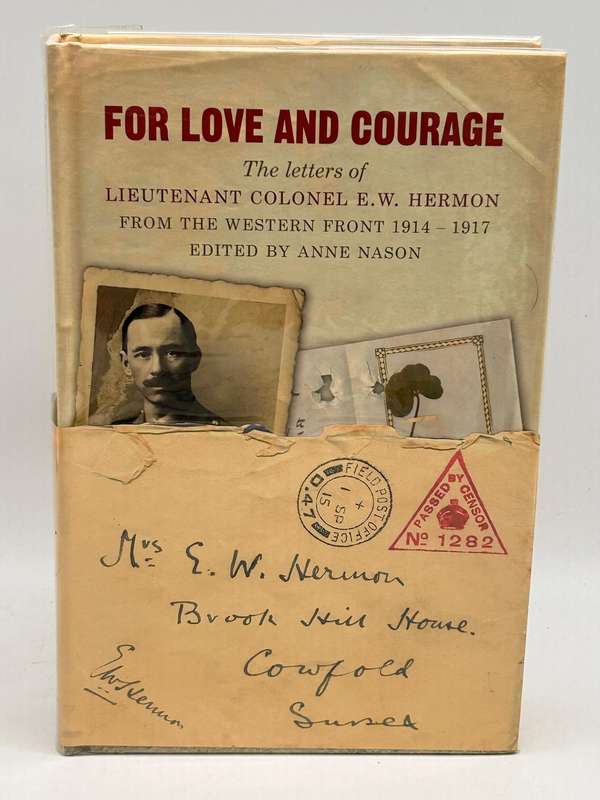 FOR LOVE AND COURAGE
The letters of
LIEUTENANT COLONEL E.W. HERMON
FROM THE WESTERN FRONT 1914 – 1917
EDITED BY ANNE NASON
FIELD POST OFFICE
+
1 SP
15
D.47
PASSED BY CENSOR
Nº 1282
Mrs E. W. Hermon
Brook Hill House.
Cowfold
Sussex
EWHermon